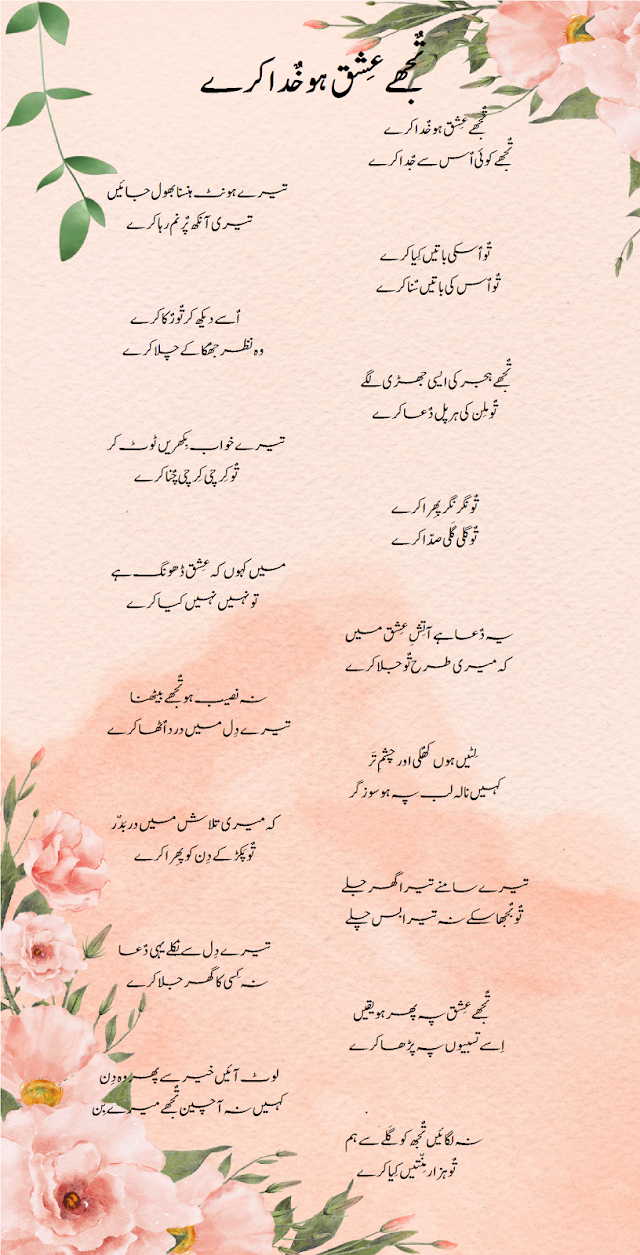 تُجھے عِشق ہو خُدا کرے
تُجھے عِشق ہو خُدا کرے
تُجھے کوئی اُس سے جُدا کرے
تیرے ہونٹ ہنسنا بھول جائیں
تیری آنکھ پُرنم رہا کرے
تُو اُسکی باتیں کِیا کرے
تُو اُس کی باتیں سُنا کرے
اُسے دیکھ کر تُو رُکا کرے
وہ نظر جھُکا کے چلا کرے
تُجھے ہجر کی ایسی جھڑی لگے
تُو مِلن کی ہر پل دُعا کرے
تیرے خواب بِکھریں ٹوٹ کر
تُو کِرچی کِرچی چُنا کرے
تُو نگر نگر پھِرا کرے
تُو گلی گلی صدا کرے
میں کہوں کہ عِشق ڈھونگ ہے
تو نہیں نہیں کیا کرے
یہ دُعا ہے آتِشِ عِشق میں
کہ میری طرح تُو جلا کرے
نہ نصیب ہو تُجھے بیٹھنا
تیرے دِل میں درد اُٹھا کرے
لٹیں ہوں کھُلی اور چشمِ تَر
کہیں نالہ لب پہ ہو سوز گر
کہ میری تلاش میں در بدَر
تُو پکڑ کے دِن کو پھِرا کرے
تیرے سامنے تیرا گھر جلے
تُو بُجھا سکے نہ تیرا بس چلے
تیرے دِل سے نِکلے یہی دُعا
نہ کِسی کا گھر جلا کرے
تُجھے عِشق پہ پھر ہو یقیں
اِسے تسبیوں پہ پڑھا کرے
لوٹ آئیں خیر سے پھر وہ دِن
کہیں نہ آ چین تُجھے میرے بِن
نہ لگائیں تُجھ کو گلے سے ہم
تُو ہزار مِنّتیں کِیا کرے